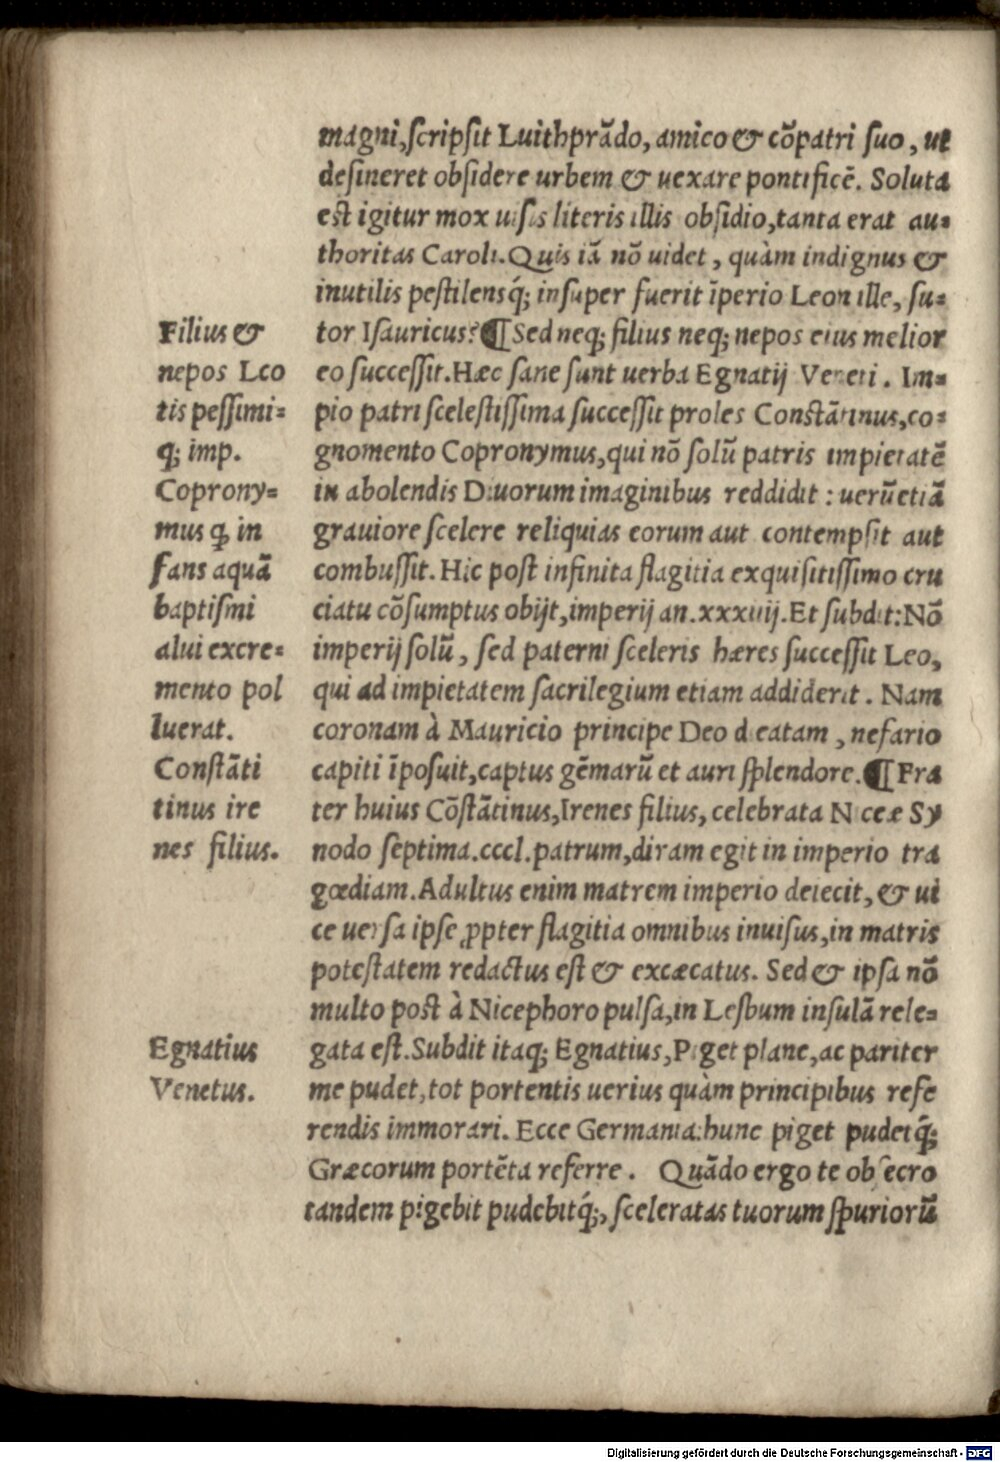 magni,ſcripſit Luithprādo, amico & cōpatri ſuo, ut
deſineret obſidere urbem & uexare pontificē. Soluta
eſt igitur mox uiſis literis illis obſidio,tanta erat au=
thoritas Caroli. Quis iā nō uidet, quàm indignus &
inutilis peſtilensq́; inſuper fuerit īperio Leon ille, ſu=
tor Iſauricus? ¶ Sed neq; filius neq; nepos eius melior
eo ſucceſſit. Hæc ſane ſunt uerba Egnatij Veneti. Im=
pio patri ſceleſtiſſima ſucceſſit proles Conſtātinus,co=
gnomento Copronymus,qui nō ſolū patris impietatē
in abolendis Diuorum imaginibus reddidit : uerūetiā
grauiore ſcelere reliquias eorum aut contempſit aut
combuſſit. Hic poſt infinita flagitia exquiſitiſſimo cru
ciatu cōſumptus obijt,imperij an.xxxiiij. Et ſubdit: Nō
imperij ſolū, ſed paterni ſceleris hæres ſucceſſit Leo,
qui ad impietatem ſacrilegium etiam addiderit. Nam
coronam à Mauricio principe Deo dicatam, nefario
capiti īpoſuit,captus gēmarū et auri ſplendore. ¶ Fra
ter huius Cōſtātinus,Irenes filius, celebrata Niceæ Sy
nodo ſeptima.cccl.patrum,diram egit in imperio tra
gœdiam. Adultus enim matrem imperio deiecit, & ui
ce uerſa ipſe ꝓpter flagitia omnibus inuiſus,in matris
poteſtatem redactus eſt & excæcatus. Sed & ipſa nō
multo poſt à Nicephoro pulſa,in Lesbum inſulā rele=
gata eſt. Subdit itaq; Egnatius, Piget plane, ac pariter
me pudet,tot portentis uerius quàm principibus refe
rendis immorari. Ecce Germania:hunc piget pudetq́;
Græcorum portēta referre. Quādo ergo te obſecro
tandem pigebit pudebitq́;, ſceleratas tuorum ſpuriorū
Filius &
nepos Leo
tis peſſimi=
q; imp.
Coprony=
mus ꝗ in
fans aquā
baptiſmi
alui excre=
mento pol
luerat.
Conſtāti
tinus ire
nes filius.
Egnatius
Venetus.
Digitalisierung gefördert durch die Deutsche Forschungsgemeinschaft - DFG